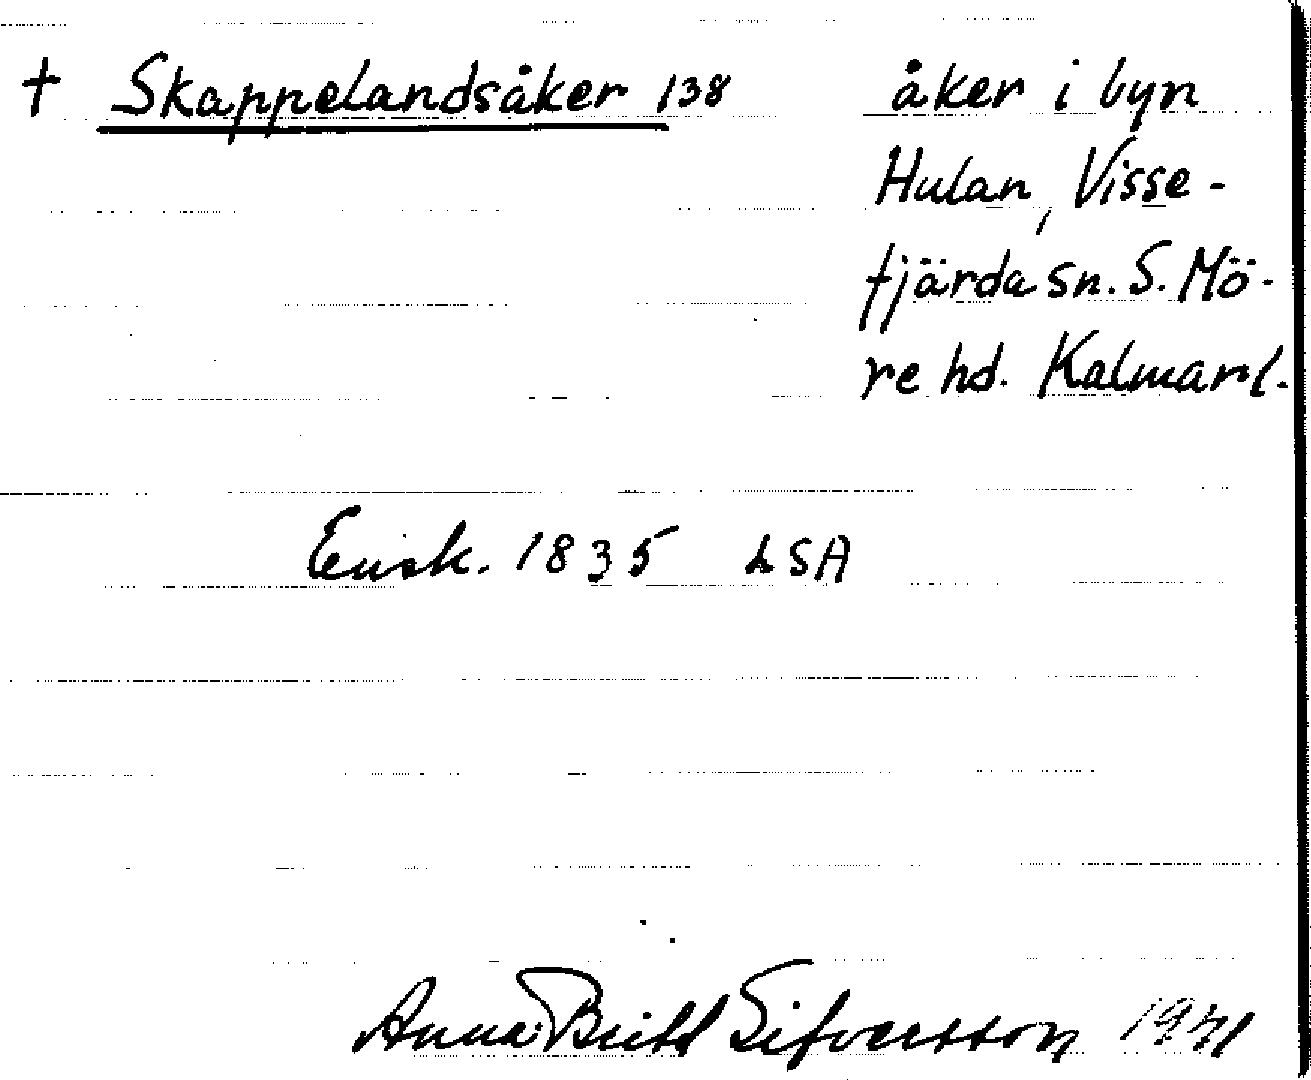 † Skappelandsåker 138 åker i byn
Hulan, Visse-
fjärda sn. S. Mö-
re hd. Kalmar l.
Ensk. 1835 LSA
Anna Britt Sifvertsson 1971